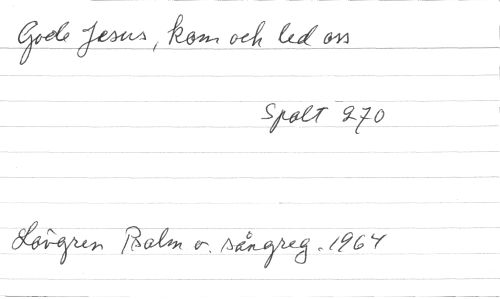 Gode Jesus, kom och led oss
Spalt 270
Lövgren Psalm o. sångreg. 1964